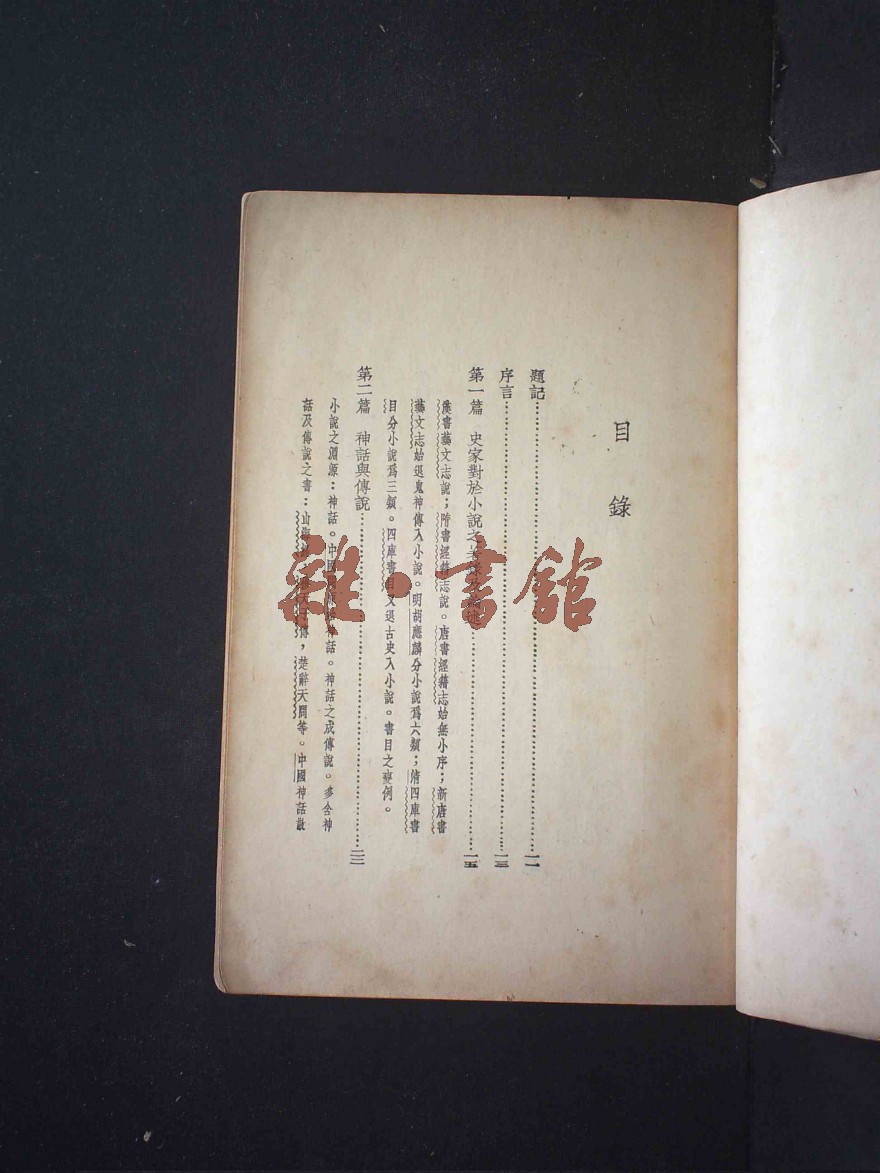 目錄
題記……一一
序言……一三
第一篇 史家對於小說之著錄及論述……一五
漢書藝文志說；隋書經籍志說。唐書經籍志始無小序；新唐書
藝文志始退鬼神傳入小說。明胡應麟分小說爲六類；清四庫書
目分小說爲三類。四庫書目又退古史入小說。書目之變例。
第二篇 神話與傳說……二三
小說之淵源：神話。中國神話。神話之成傳說。多含神
話及傳說之書：山海經，穆天子傳，楚辭天問等。中國神話散
雜·書館